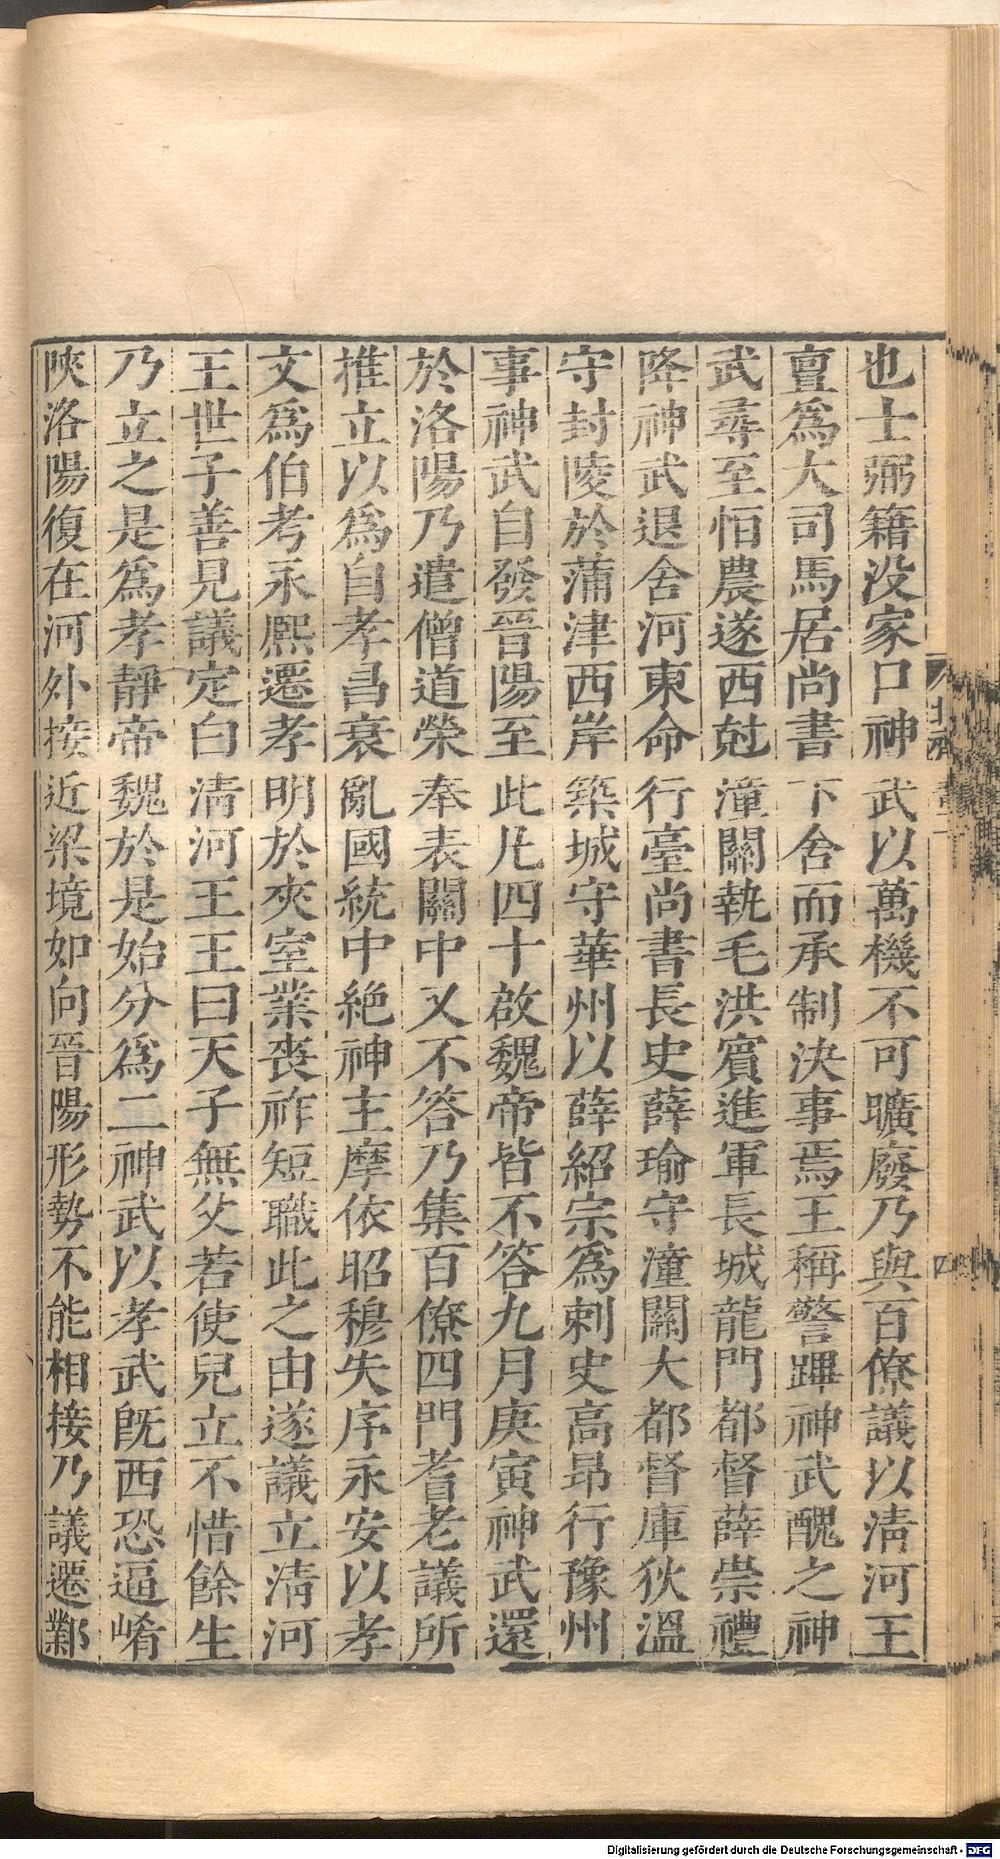 也士弼籍没家口神武以萬機不可曠廢乃與百僚議以清河王
亶爲大司馬居尚書下舍而承制决事焉王稱警蹕神武醜之神
武尋至恒農遂西尅潼關執毛洪賓進軍長城龍門都督薛崇禮
降神武退舍河東命行臺尚書長史薛瑜守潼關大都督庫狄溫
守封陵於蒲津西岸築城守華州以薛紹宗爲刺史高昂行豫州
事神武自發晉陽至此凡四十啟魏帝皆不答九月庚寅神武還
於洛陽乃遣僧道榮奉表關中又不答乃集百僚四門耆老議所
推立以爲自孝昌衰亂國統中絶神主摩依昭穆失序永安以孝
文爲伯考永熙遷孝明於夾室業喪祚短職此之由遂議立清河
王世子善見議定白清河王王曰天子無父若使兒立不惜餘生
乃立之是爲孝靜帝魏於是始分爲二神武以孝武旣西恐逼崤
陜洛陽復在河外接近梁境如向晉陽形勢不能相接乃議遷鄴
Digitalisierung gefördert durch die Deutsche Forschungsgemeinschaft - DFG